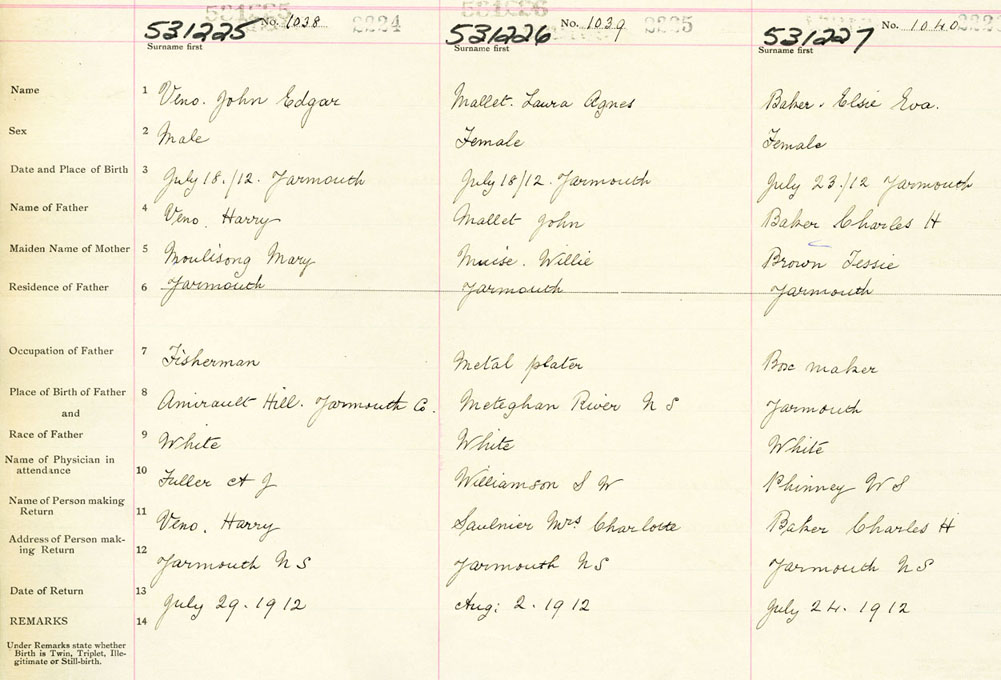 531225 No. 1038 2224 531226 No. 1039 2225 531227 No. 1040
Surname first Surname first Surname first
Name 1 Veno. John Edgar Mallet. Laura Agnes Baker. Elsie Eva.
Sex 2 Male Female Female
Date and Place of Birth 3 July 18./12. Yarmouth July 18/12. Yarmouth July 23./12 Yarmouth
Name of Father 4 Veno. Harry Mallet John Baker Charles H
Maiden Name of Mother 5 Moulisong Mary Muise. Willie Brown Tessie
Residence of Father 6 Yarmouth Yarmouth Yarmouth
Occupation of Father 7 Fisherman Metal plater Box maker
Place of Birth of Father 8 Amirault Hill. Yarmouth Co. Meteghan River N S Yarmouth
and
Race of Father 9 White White White
Name of Physician in
attendance 10 Fuller A J Williamson S W Phinney W S
Name of Person making
Return 11 Veno. Harry Saulnier Mrs Charlotte Baker Charles H
Address of Person mak-
ing Return 12 Yarmouth N S Yarmouth N S Yarmouth N S
Date of Return 13 July 29. 1912 Aug: 2. 1912 July 24. 1912
REMARKS 14
Under Remarks state whether
Birth is Twin, Triplet, Ille-
gitimate or Still-birth.